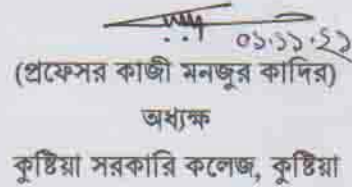 ০১.১১.২১
(প্রফেসর কাজী মনজুর কাদির)
অধ্যক্ষ
কুষ্টিয়া সরকারি কলেজ, কুষ্টিয়া